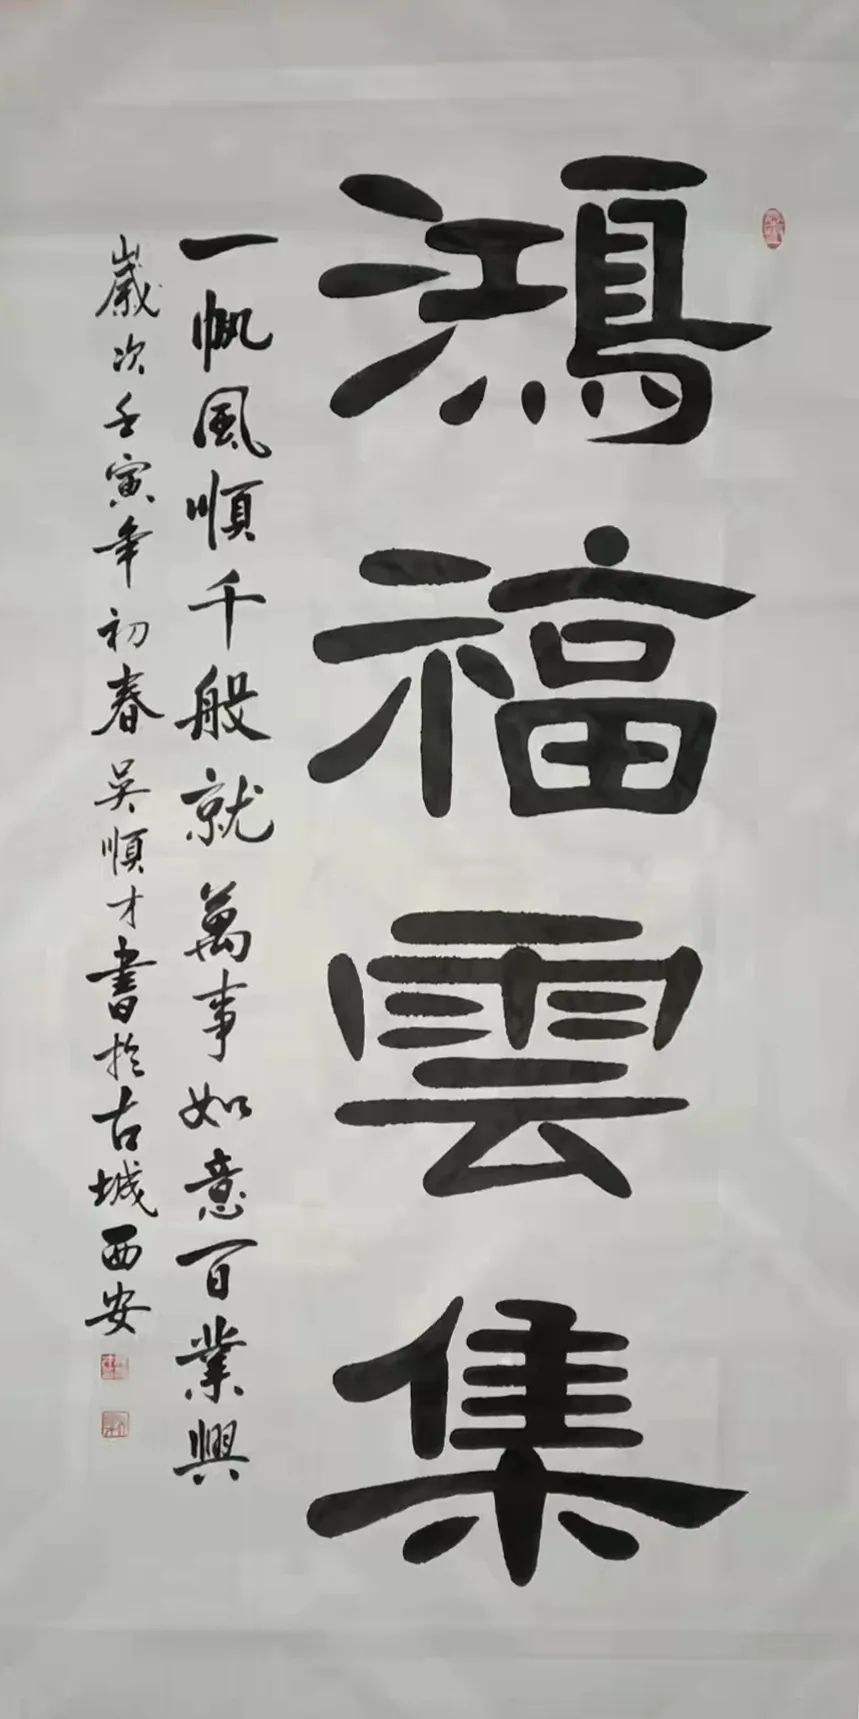 鴻福雲集
一帆風順千般就萬事如意百業興
歲次壬寅年初春吳順才書於古城西安